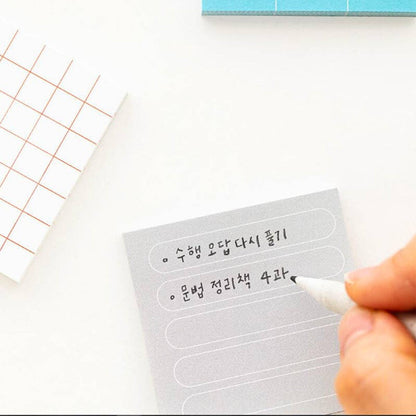 • 수행 오답 다시 풀기
• 문법 정리책 4과